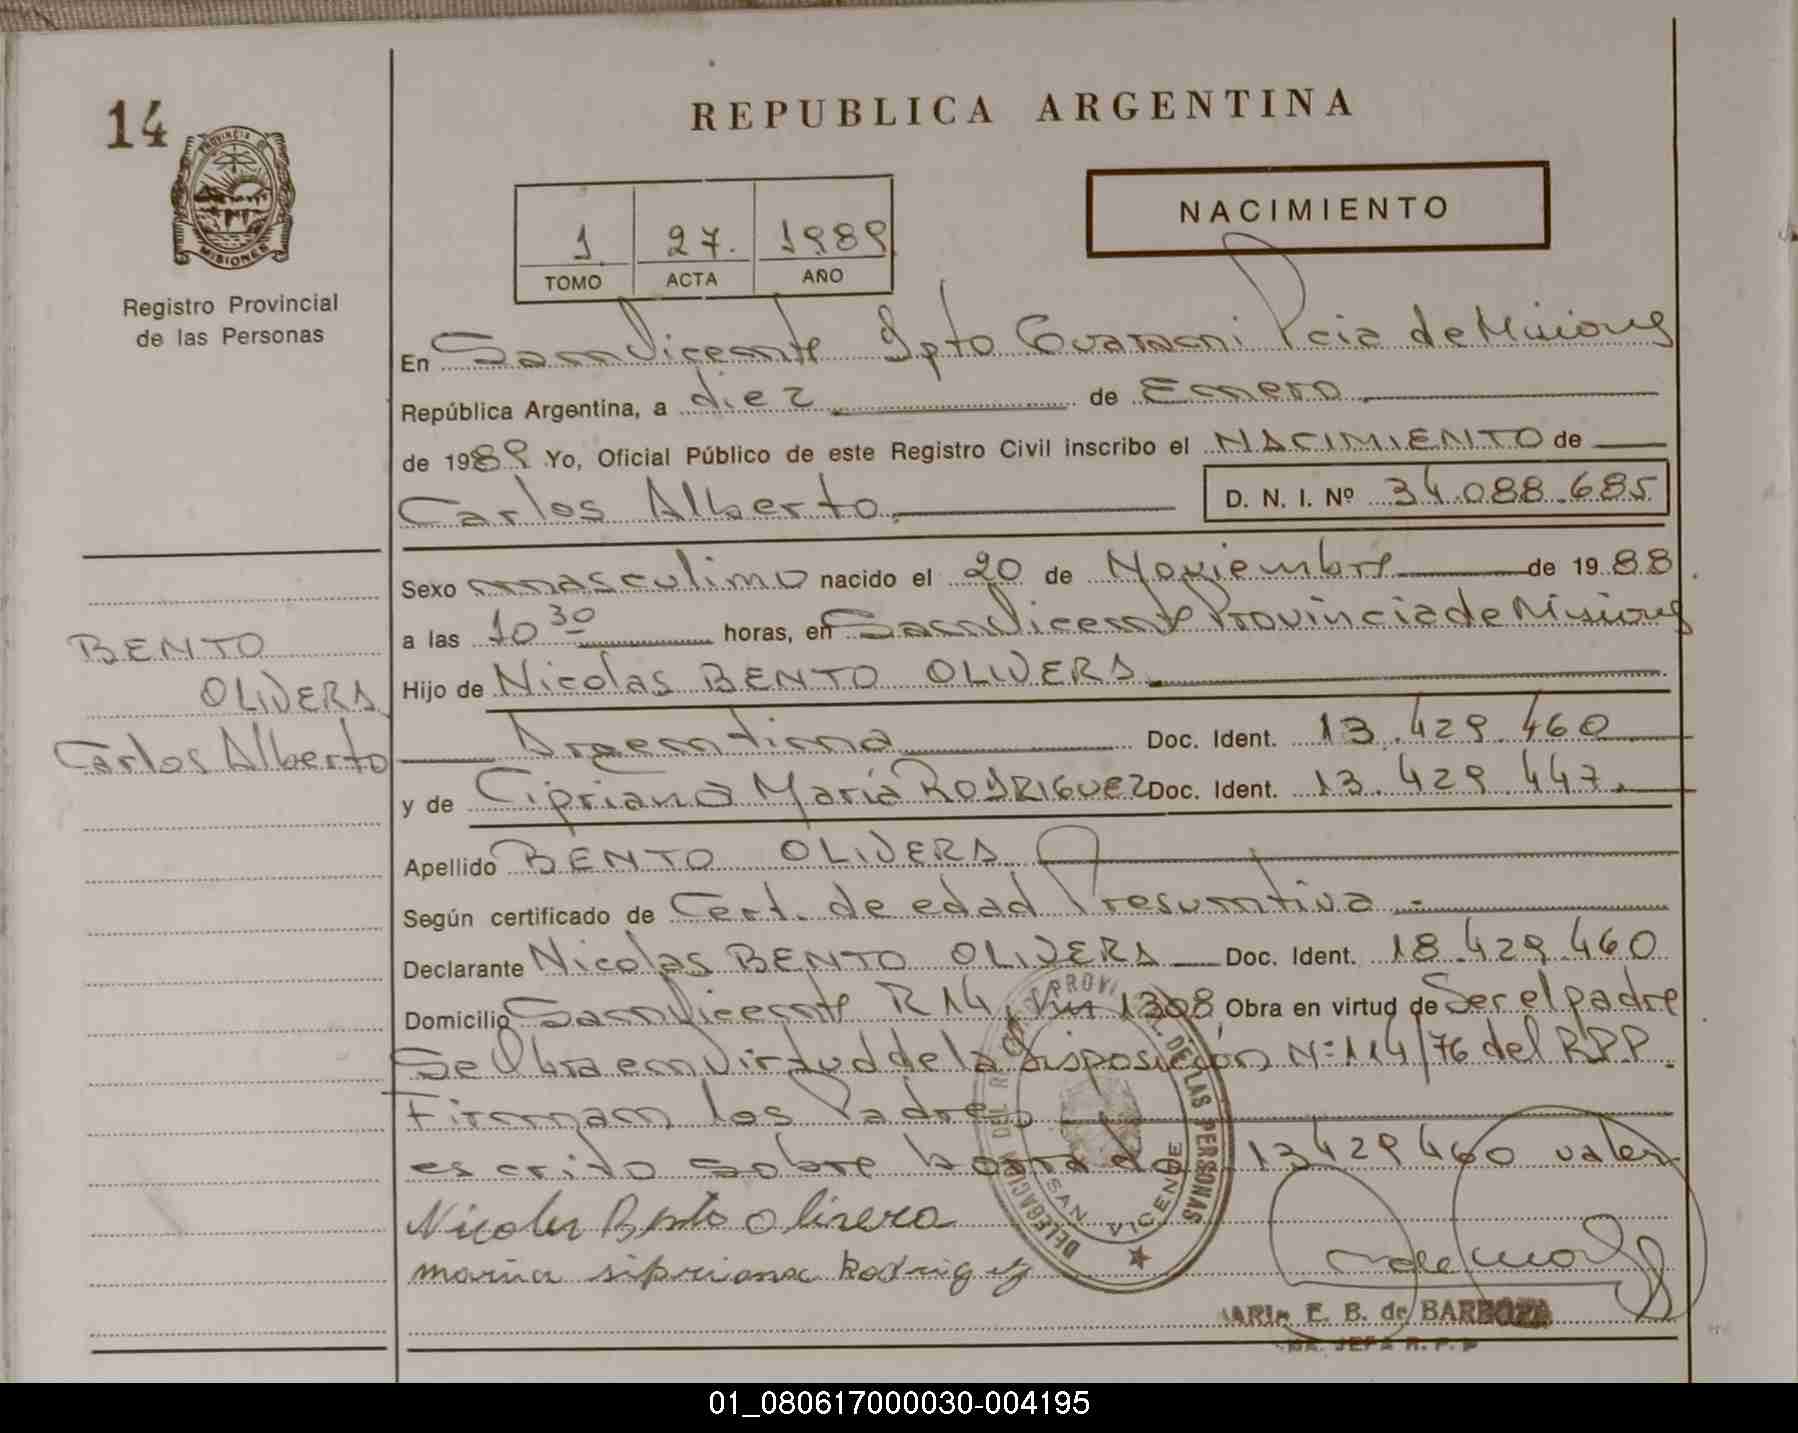 14
PROVINCIA
MISIONES
Registro Provincial
de las Personas
REPUBLICA ARGENTINA
NACIMIENTO
1 27. 1989
TOMO ACTA AÑO
En San Vicente Dpto Guarani Pcia de Misiones
República Argentina, a diez de Enero
de 1989 Yo, Oficial Público de este Registro Civil inscribo el NACIMIENTO de
Carlos Alberto D. N. I. Nº 34.088.685
Sexo masculino nacido el 20 de Noviembre de 1988
a las 10 30 horas, en San Vicente Provincia de Misiones
Hijo de Nicolas BENTO OLIVERA
Argentina Doc. Ident. 13.429.460
y de Cipriana María RODRIGUEZ Doc. Ident. 13.429.447.
Apellido BENTO OLIVERA
Según certificado de Cert. de edad Presuntiva.-
Declarante Nicolas BENTO OLIVERA Doc. Ident. 18.429.460
Domicilio San Vicente R 14, Km 1308, Obra en virtud de Ser el padre
Se Obra en Virtud de la Disposición Nº 114/76 del RPP.
Firman los Padres
escrito sobre borrado 13429460 vale.
Nicolas Bento olivera
maria sipriana Rodriguez
BENTO
OLIVERA
Carlos Alberto
DELEGACION DEL PROVINCIAL DE LAS PERSONAS
SAN VICENTE
E. B. de BARBOZA
JEFA R. P. P
01_080617000030-004195